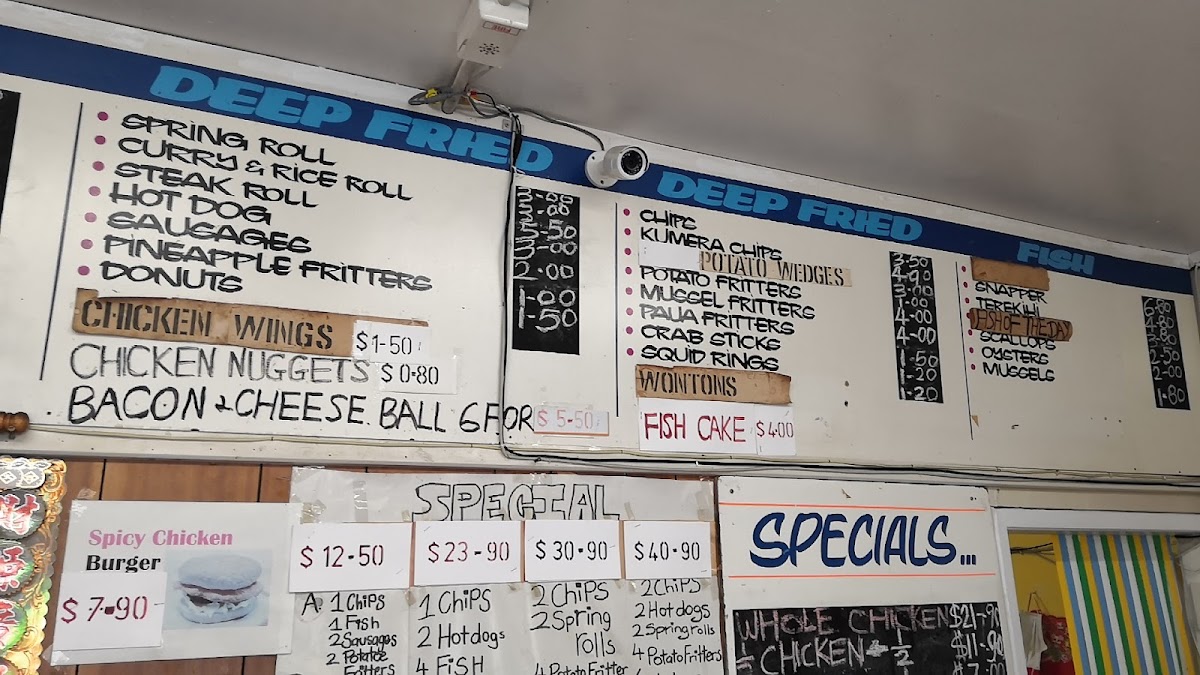 DEEP FRIED
SPRING ROLL
CURRY & RICE ROLL
STEAK ROLL
HOT DOG
SAUSAGES
PINEAPPLE FRITTERS
DONUTS
3.00
3.00
3.50
3.00
2.00
1.00
1.50
CHICKEN WINGS $1.50
CHICKEN NUGGETS $0.80
BACON & CHEESE BALL 6 FOR $5.50
DEEP FRIED
CHIPS
KUMERA CHIPS
POTATO WEDGES
POTATO FRITTERS
MUSSEL FRITTERS
PAUA FRITTERS
CRAB STICKS
SQUID RINGS
WONTONS
3.50
4.90
3.00
1.00
4.00
4.00
1.50
1.20
1.20
FISH CAKE $4.00
FISH
SNAPPER
TEREKIHI
FISH OF THE DAY
SCALLOPS
OYSTERS
MUSSELS
6.80
4.80
3.80
2.50
2.00
1.80
Spicy Chicken
Burger
$7.90
SPECIAL
$12.50
A. 1 Chips
1 Fish
2 Sausages
2 Potatoe
Fritters
$23.90
1 Chips
2 Hotdogs
4 FiSH
$30.90
2 Chips
2 Spring
rolls
4 Potato Fritter
$40.90
2 Chips
2 Hotdogs
2 Spring rolls
4 Potato Fritters
SPECIALS...
WHOLE CHICKEN $21.90
CHICKEN 1/2 $11.90
$7.00